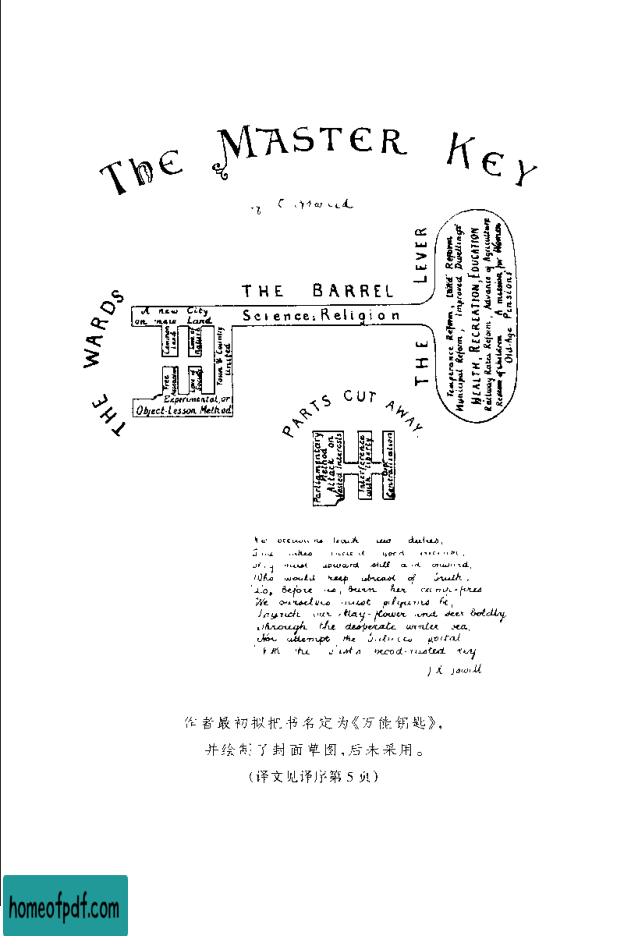 The MASTER KEY
THE WARDS
THE BARREL
THE LEVER
A new City
on new Land
Science; Religion
Common
Land
Love of
Nature
Free
Love of
Society
Town & Country
United
Experimental, or
Object-Lesson Method
Temperance Reform, Land Reform
Municipal Reform, Improved Dwellings
HEALTH, RECREATION, EDUCATION
Railway Rates Reform, Advance of Agriculture
Rescue of Children A mission for Women
Old-Age Pensions
PARTS CUT AWAY.
Parliamentary
Method
Attack on
Vested Interests
Interference
with liberty
Over
Centralization
New occasions teach new duties,
Time makes ancient good
They must upward still and onward,
Who would keep abreast of Truth.
Lo, before us, burn her camp-fires
We ourselves must pilgrims be,
Launch our May-flower and steer boldly
through the desperate winter sea,
Nor attempt the Future's portal
With the Past's blood-rusted key
作者最初拟把书名定为《万能钥匙》,
并绘制了封面草图,后未采用。
(译文见译序第 5 页)
homeofpdf.com